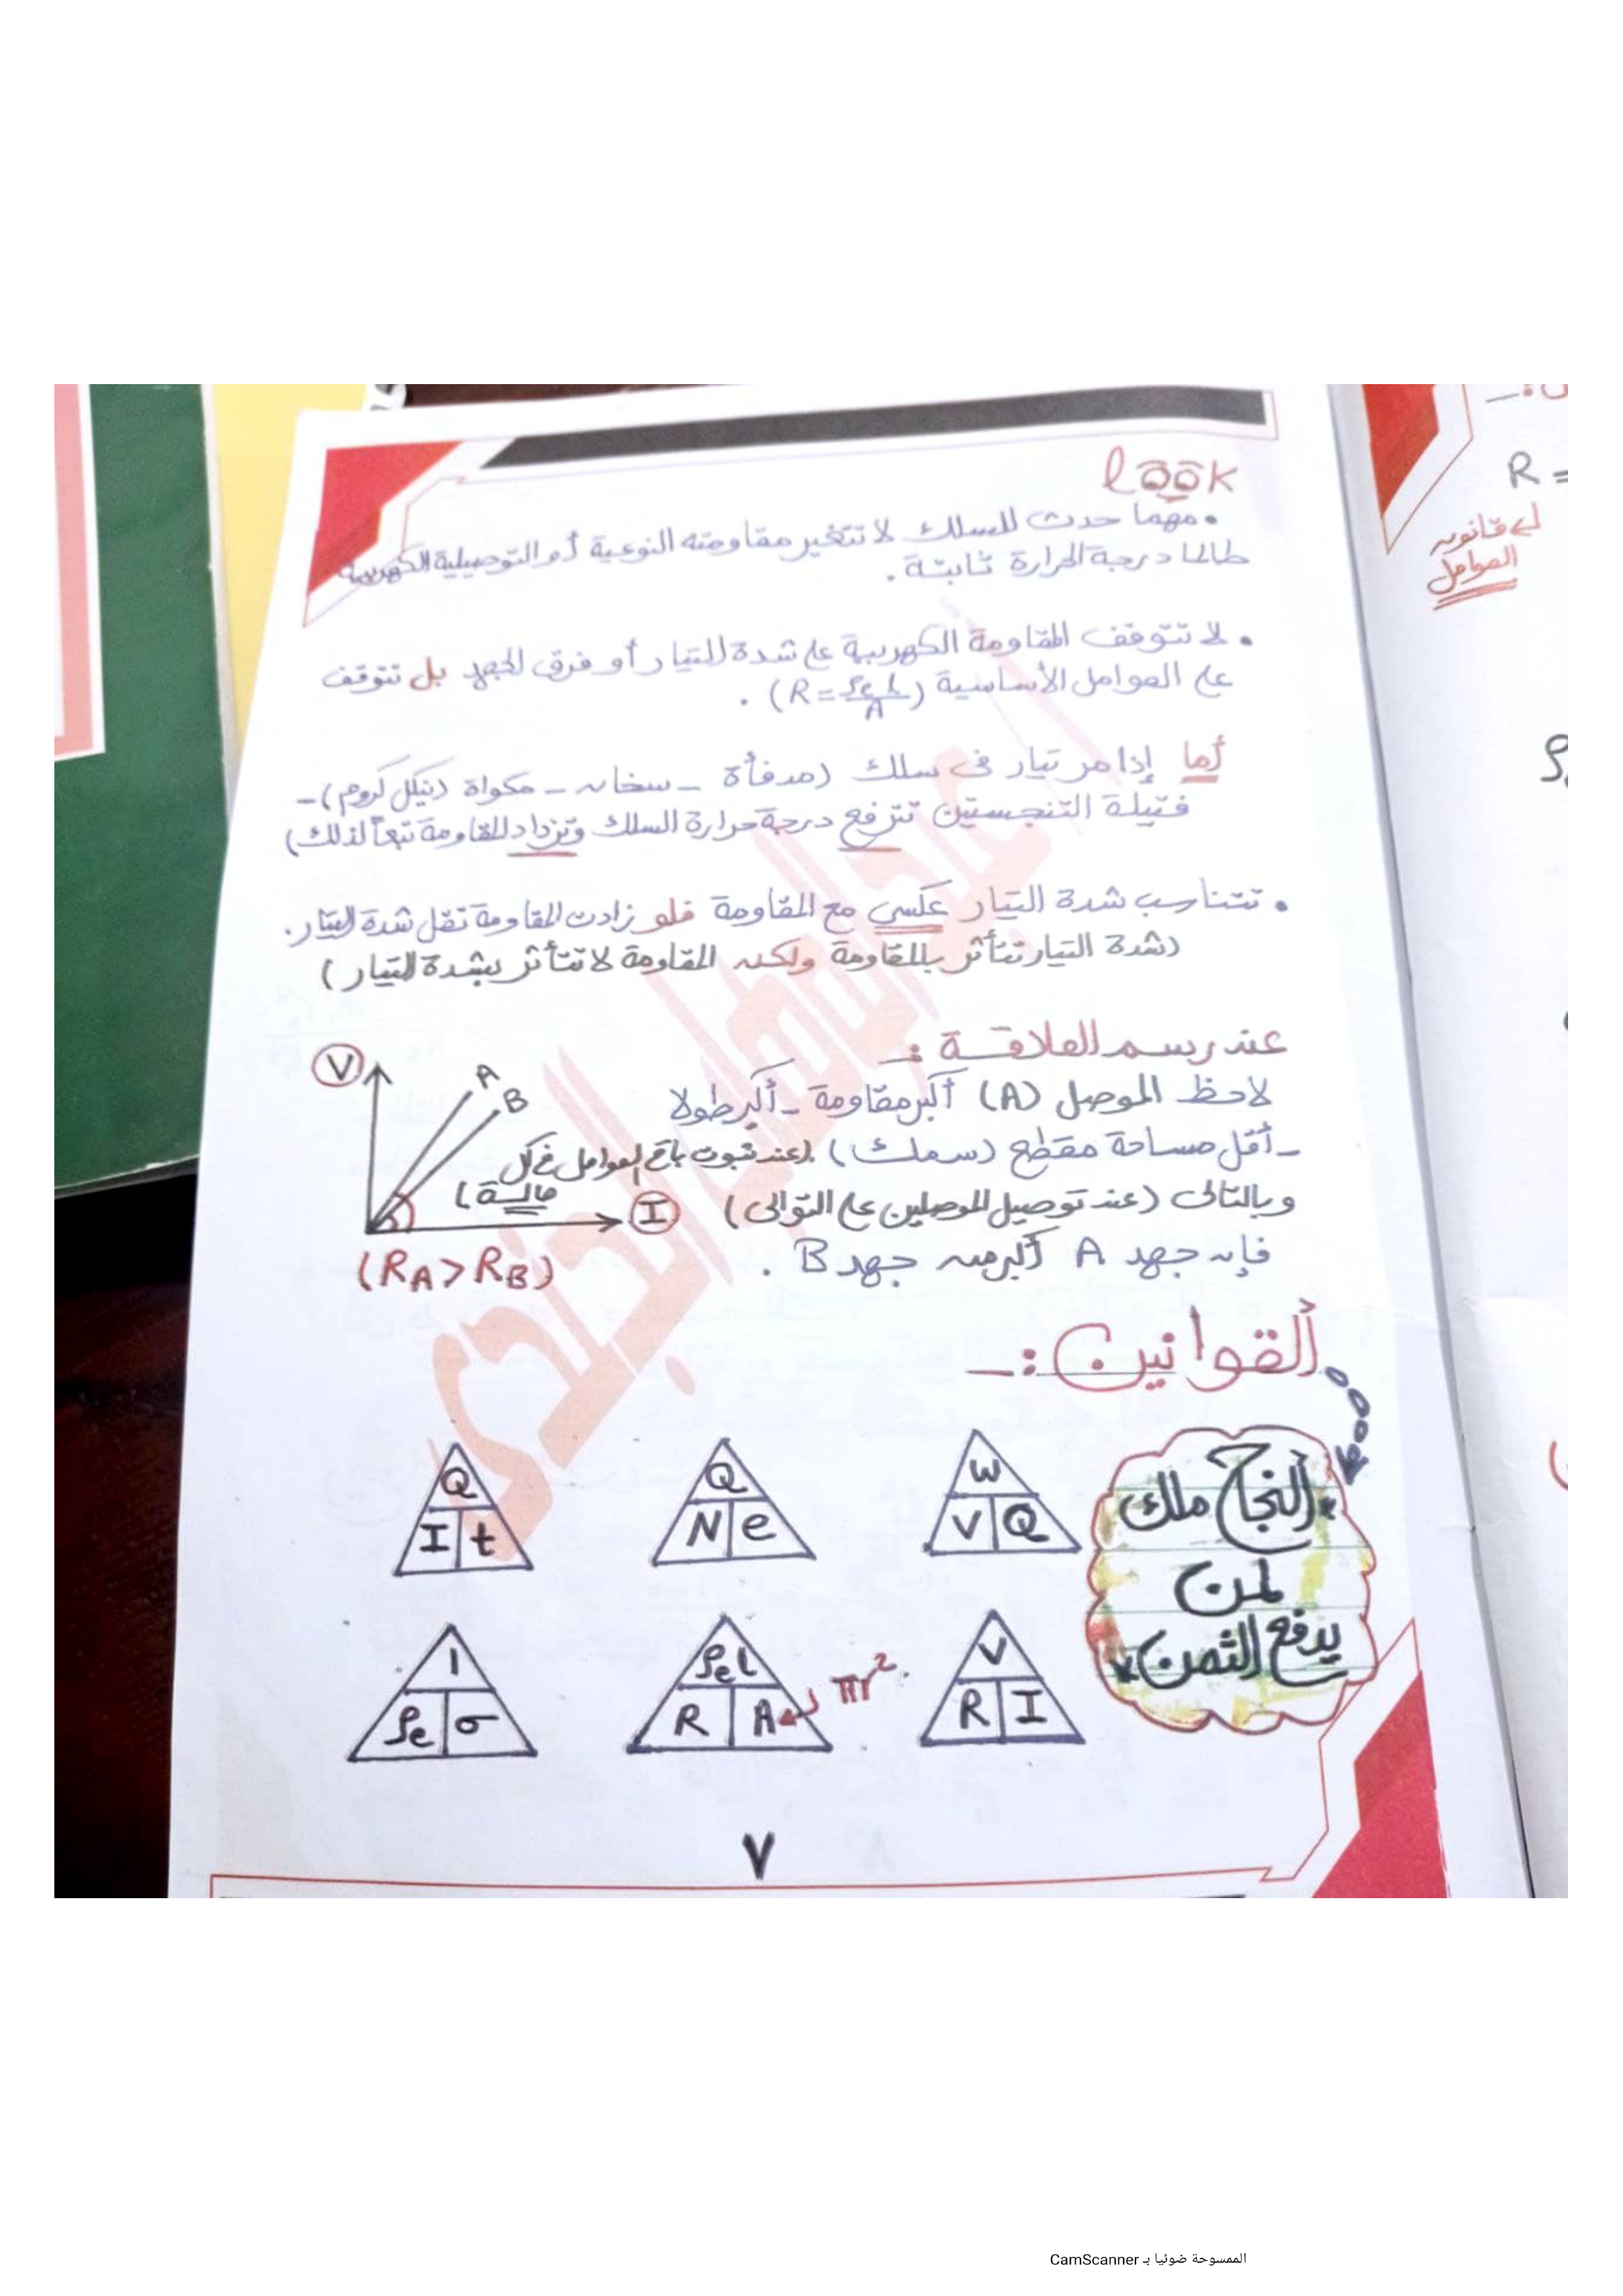 look
• مهما حدث للسلك لا تتغير مقاومته النوعية أو التوصيلية الكهربية
طالما درجة الحرارة ثابتة .
• لا تتوقف المقاومة الكهربية على شدة التيار أو فرق الجهد بل تتوقف
على العوامل الأساسية (R = ρe l / A) .
أما إذا مر تيار في سلك (مدفأة - سخان - مكواة (نيكل كروم) -
فتيلة التنجستين ترتفع درجة حرارة السلك وتزداد المقاومة تبعاً لذلك)
• تتناسب شدة التيار عكسي مع المقاومة فلو زادت المقاومة تقل شدة التيار.
(شدة التيار تتأثر بالمقاومة ولكن المقاومة لا تتأثر بشدة التيار)
عند رسم العلاقة :-
لاحظ الموصل (A) أكبر مقاومة - أكبر طولا
- أقل مساحة مقطع (سمك) (عند ثبوت باقي العوامل في كل
حالة)
وبالتالى (عند توصيل الموصلين على التوالى)
فإن جهد A أكبر من جهد B .
V
A
B
I
(RA > RB)
القوانين :-
"النجاح ملك
لمن
يدفع الثمن"
W
V Q
Q
N e
Q
I t
V
R I
ρe l
R A
πr².
1
ρe σ
٧
R =
قانون
العوامل
الممسوحة ضوئيا بـ CamScanner